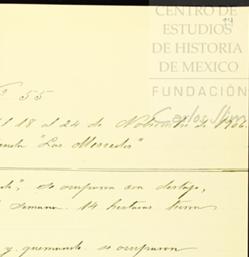 CENTRO DE
ESTUDIOS
DE HISTORIA
DE MEXICO
FUNDACIÓN
Carlos Slim
55
l 18 al 24 de Noviembre de 1906
"Las Mercedes"
se ocuparon con destajo,
semana. 14 hectareas
y quemando se ocuparon